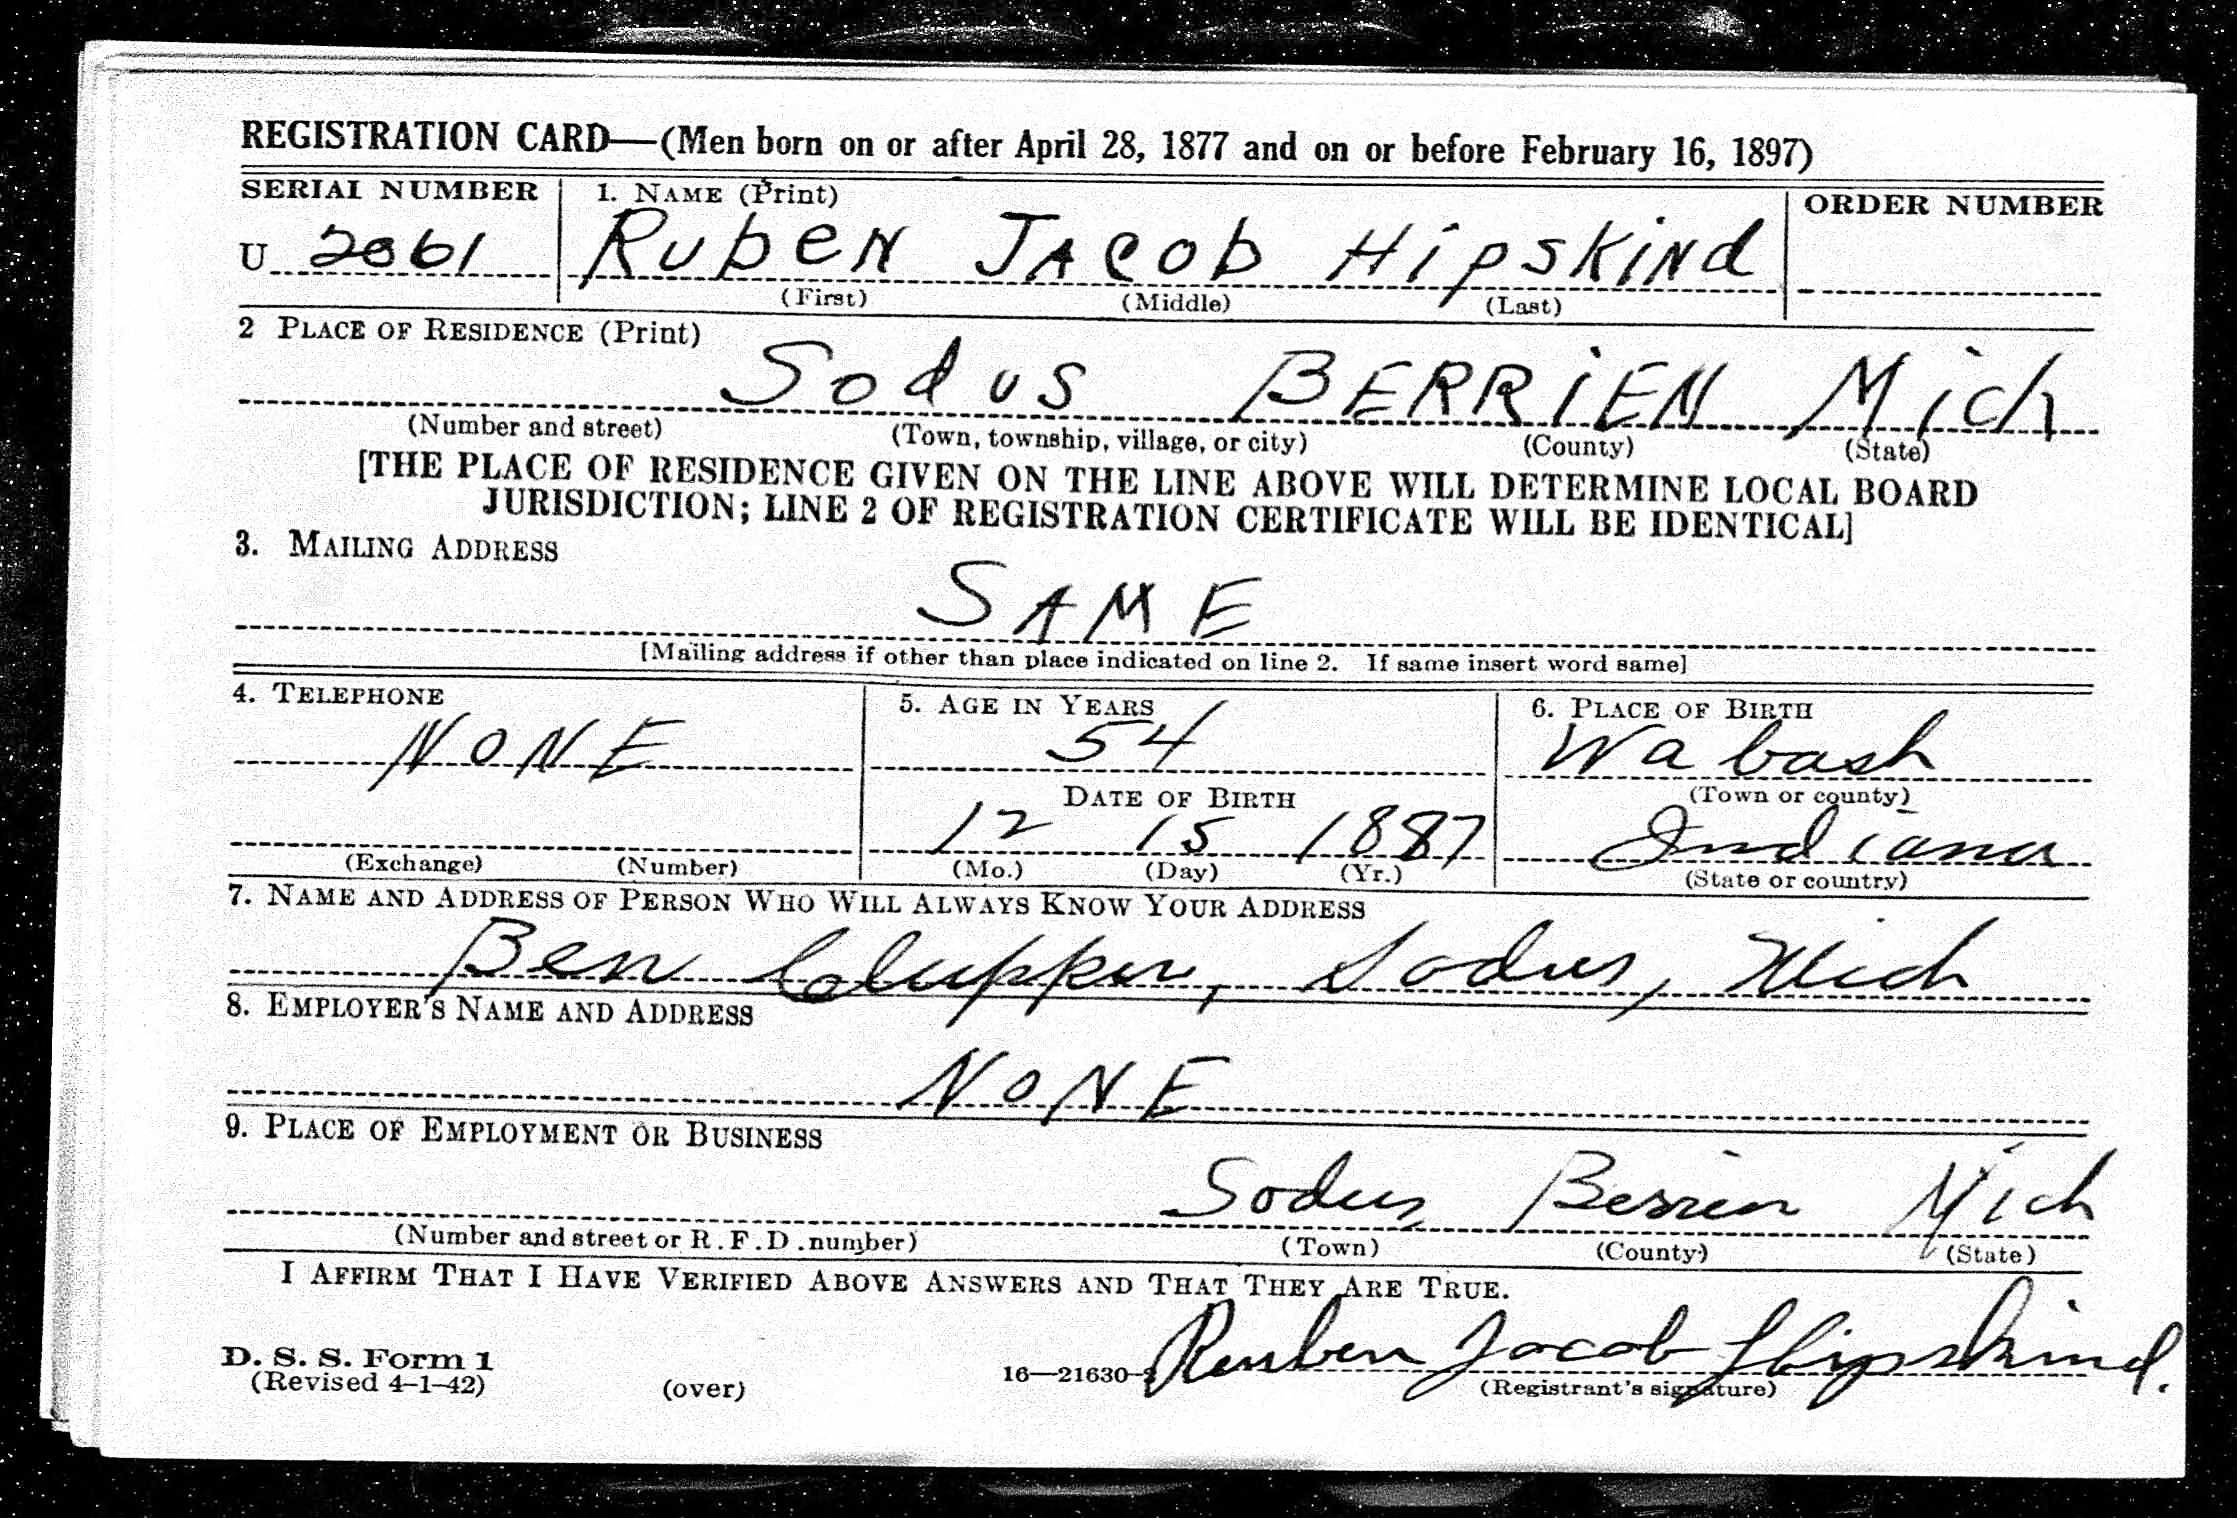 REGISTRATION CARD—(Men born on or after April 28, 1877 and on or before February 16, 1897)
SERIAL NUMBER 1. NAME (Print) ORDER NUMBER
U 2061 RUbEN JACOb HipSKiNd
(First) (Middle) (Last)
2 PLACE OF RESIDENCE (Print)
Sodus BERRiEN Mich
(Number and street) (Town, township, village, or city) (County) (State)
[THE PLACE OF RESIDENCE GIVEN ON THE LINE ABOVE WILL DETERMINE LOCAL BOARD
JURISDICTION; LINE 2 OF REGISTRATION CERTIFICATE WILL BE IDENTICAL]
3. MAILING ADDRESS
SAME
[Mailing address if other than place indicated on line 2. If same insert word same]
4. TELEPHONE 5. AGE IN YEARS 6. PLACE OF BIRTH
NONE 54 Wabash
DATE OF BIRTH (Town or county)
12 15 1887 Indiana
(Exchange) (Number) (Mo.) (Day) (Yr.) (State or country)
7. NAME AND ADDRESS OF PERSON WHO WILL ALWAYS KNOW YOUR ADDRESS
Ben Clupper, Sodus, Mich
8. EMPLOYER'S NAME AND ADDRESS
NONE
9. PLACE OF EMPLOYMENT OR BUSINESS
Sodus Berrien Mich
(Number and street or R.F.D. number) (Town) (County) (State)
I AFFIRM THAT I HAVE VERIFIED ABOVE ANSWERS AND THAT THEY ARE TRUE.
Reuben Jacob Hipskind.
D. S. S. Form 1
(Revised 4-1-42) (over) 16—21630-2 (Registrant's signature)